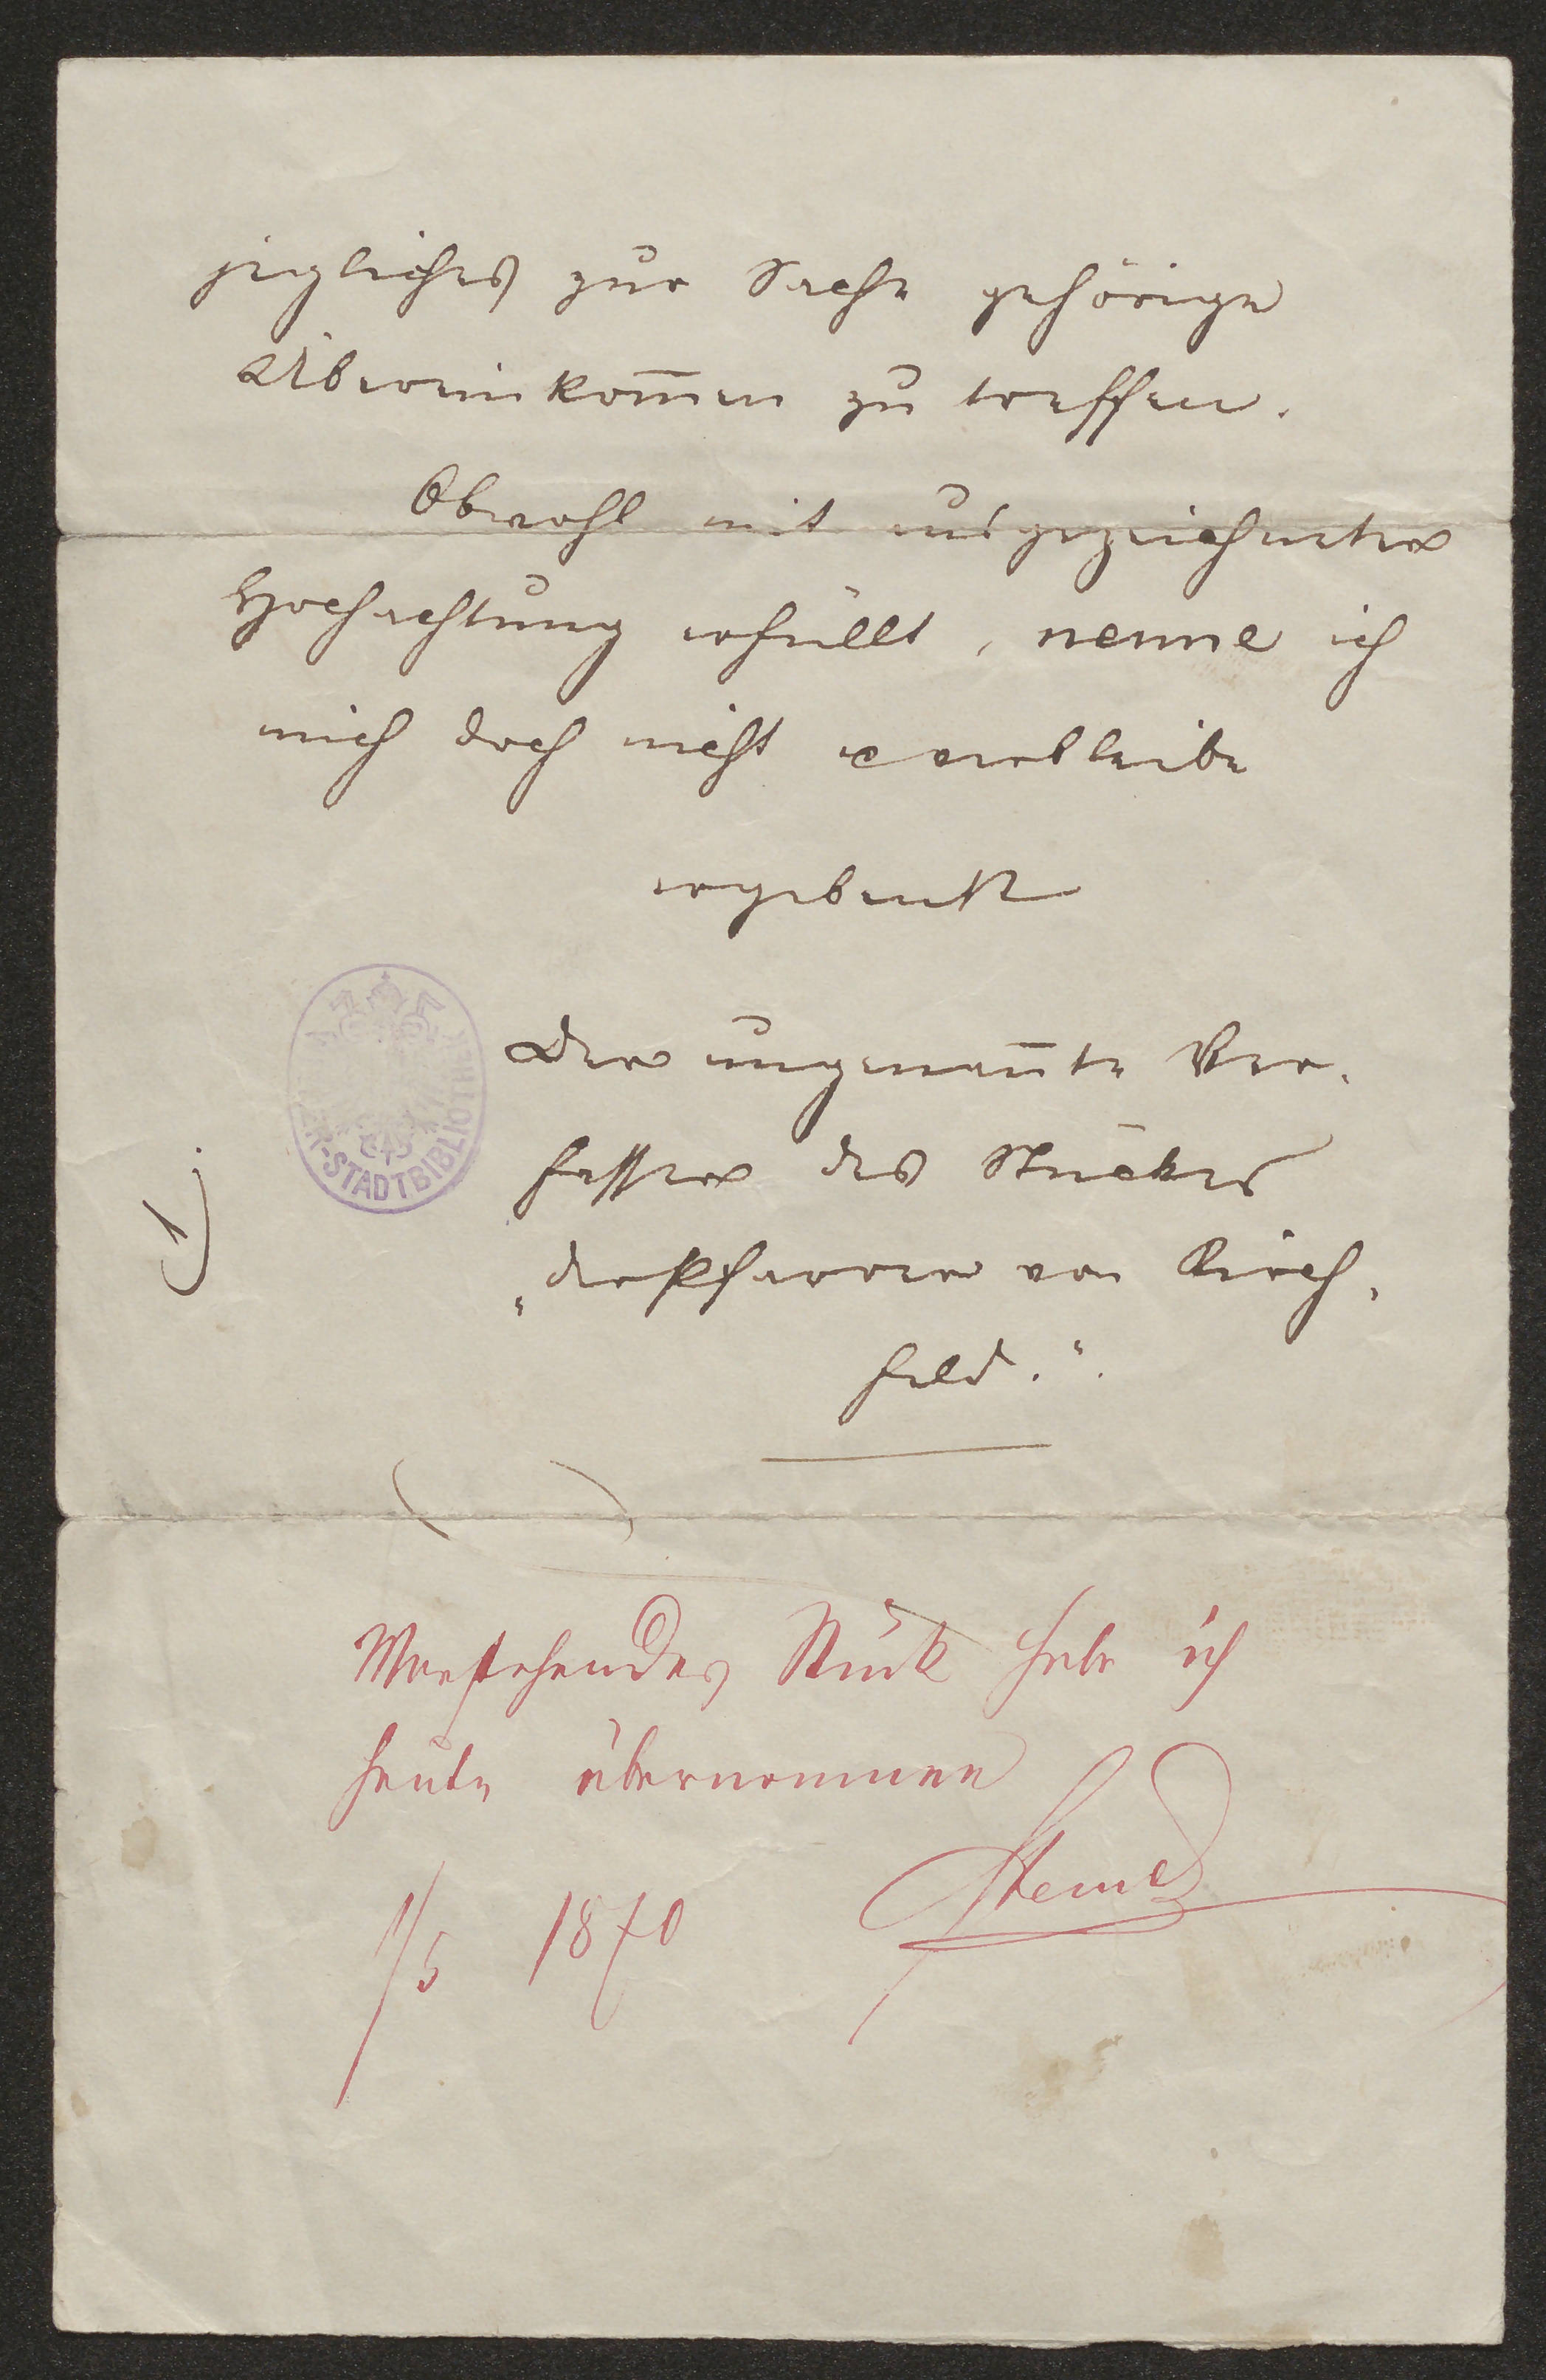 jegliches zur Sache gehörige
Übereinkom̄en zu treffen.
Obwohl mit ausgezeichneter
Hochachtung erfüllt, nenne ich
mich doch nicht u verbleibe
ergebenst
Der ungenan̄te Ver-
fasser des Stückes
„der Pfarrer von Kirch-
feld.“.
STADTBIBLIOTHEK
Vorstehendes Stück habe ich
heute übernommen
1/5 1870